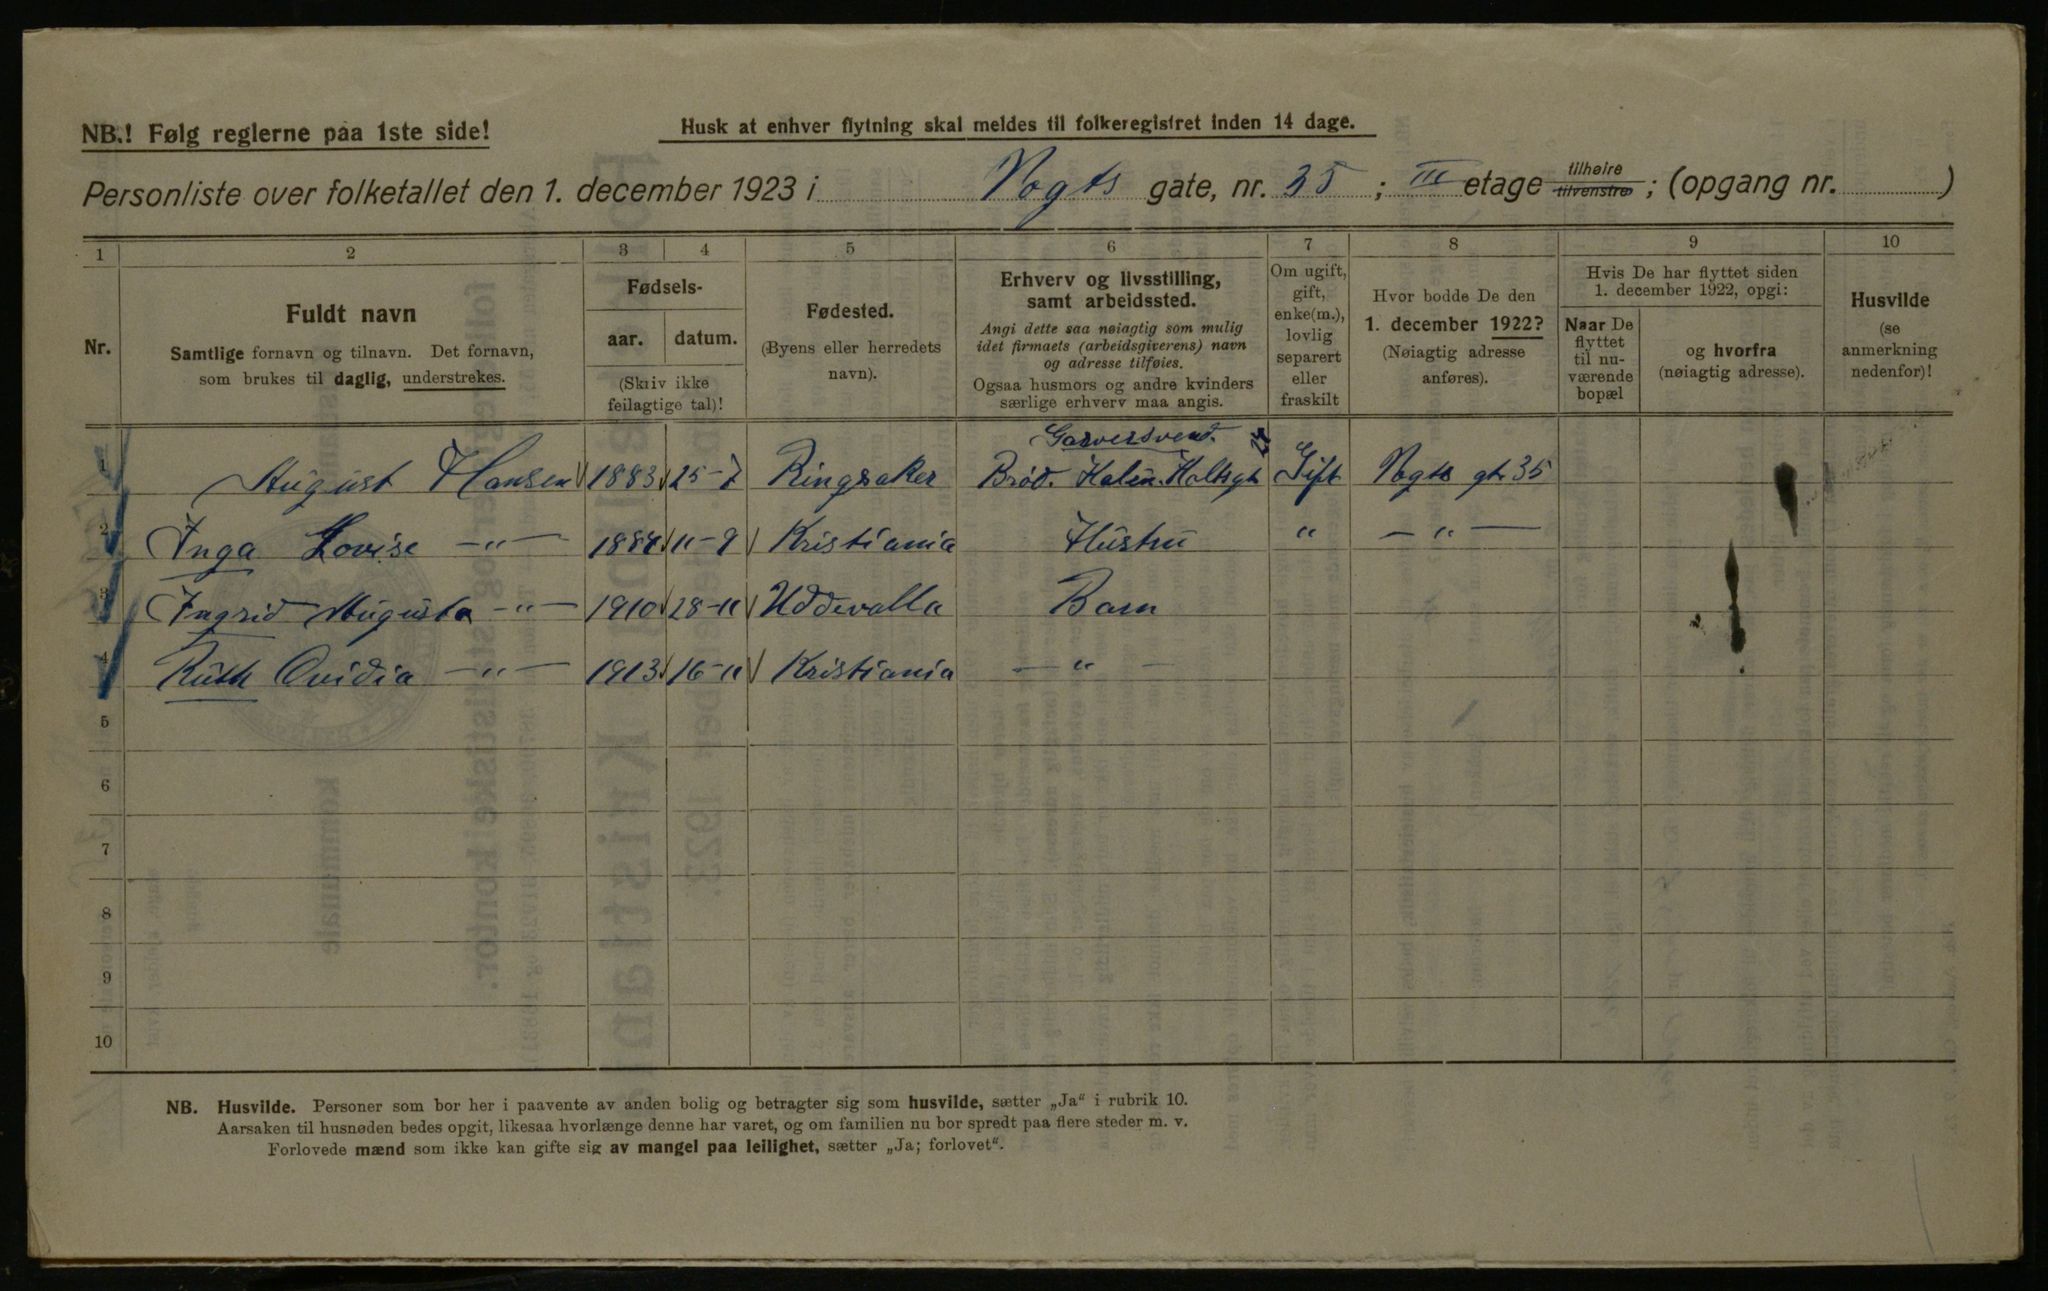 NB.! Følg reglerne paa 1ste side!
Husk at enhver flytning skal meldes til folkeregistret inden 14 dage.
Personliste over folketallet den 1. december 1923 i Vogts gate, nr. 35 ; III etage tilhøire tilvenstre ; (opgang nr. )
1 2 3 4 5 6 7 8 9 10
Nr.
Fuldt navn
Samtlige fornavn og tilnavn. Det fornavn,
som brukes til daglig, understrekes.
Fødsels-
aar. datum.
(Skriv ikke
feilagtige tal)!
Fødested.
(Byens eller herredets
navn).
Erhverv og livsstilling,
samt arbeidssted.
Angi dette saa nøiagtig som mulig
idet firmaets (arbeidsgiverens) navn
og adresse tilføies.
Ogsaa husmors og andre kvinders
særlige erhverv maa angis.
Om ugift,
gift,
enke(m.),
lovlig
separert
eller
fraskilt
Hvor bodde De den
1. december 1922?
(Nøiagtig adresse
anføres).
Hvis De har flyttet siden
1. december 1922, opgi:
Naar De
flyttet
til nu-
værende
bopæl
og hvorfra
(nøiagtig adresse).
Husvilde
(se
anmerkning
nedenfor)!
Garversvend.
1 August Hansen 1883 25-7 Ringsaker Brød. Holm. Holtsgt Gift Vogts gt. 35
2 Inga Lovise -"- 11-9 Kristiania Hustru " -"-
3 Ingrid Augusta -"- 1910 28-11 Uddevalla Barn
4 Ruth Ovidia -"- 1913 16-11 Kristiania -"-
5
6
7
8
9
10
NB. Husvilde. Personer som bor her i paavente av anden bolig og betragter sig som husvilde, sætter „Ja“ i rubrik 10.
Aarsaken til husnøden bedes opgit, likesaa hvorlænge denne har varet, og om familien nu bor spredt paa flere steder m. v.
Forlovede mænd som ikke kan gifte sig av mangel paa leilighet, sætter „Ja; forlovet“.